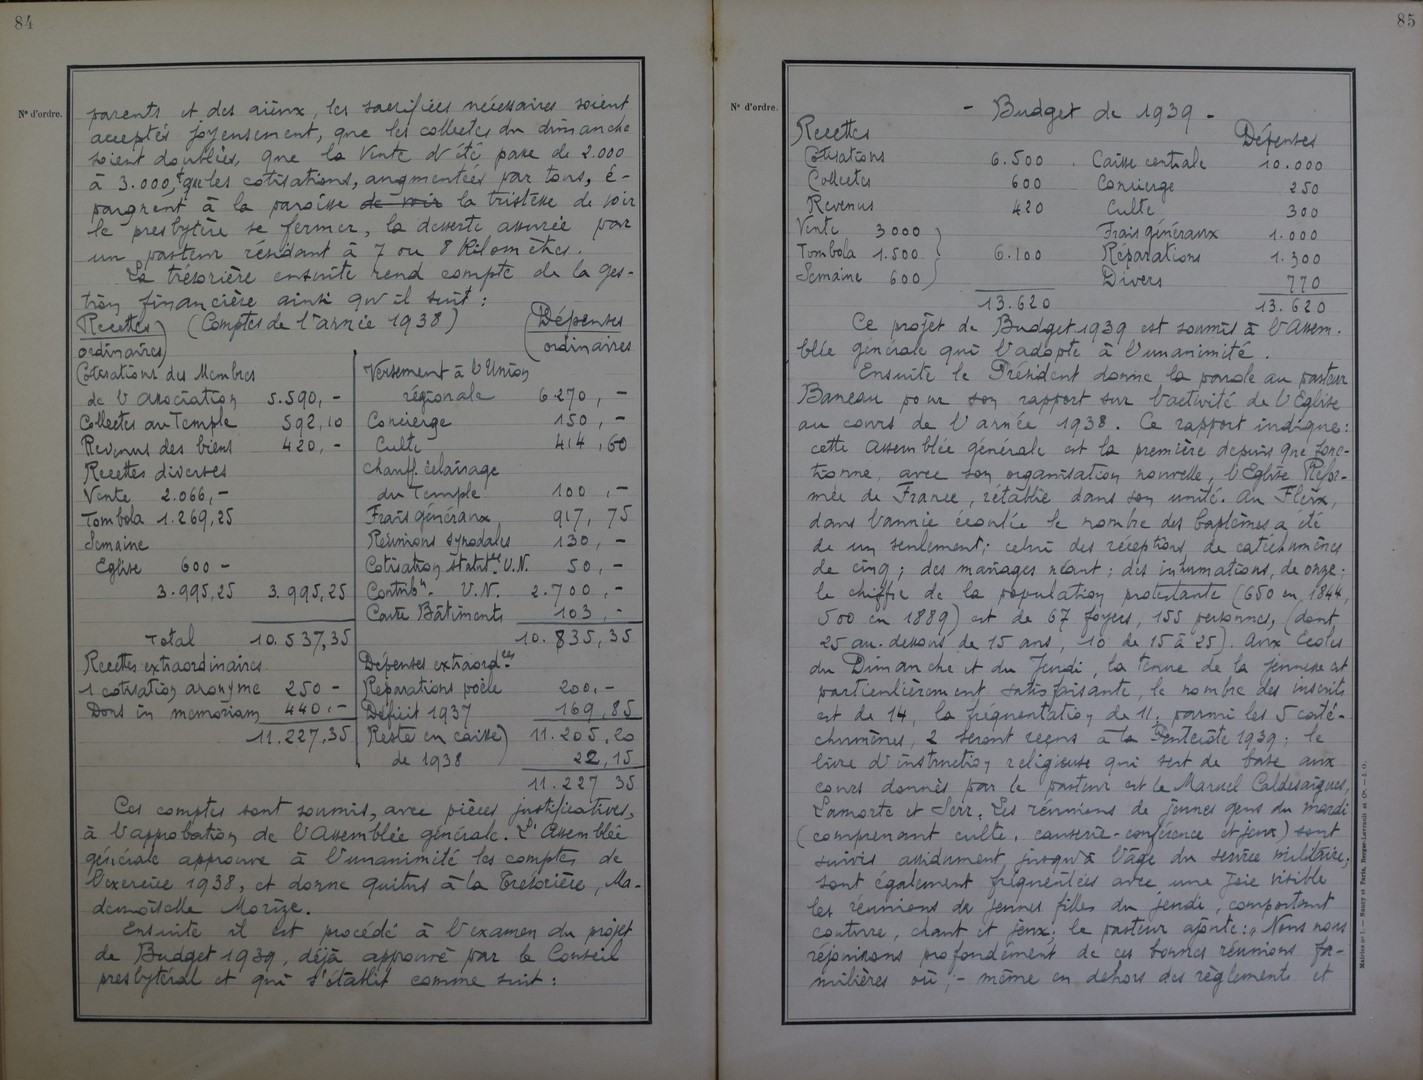 84
N° d'ordre.
parents et des aïeux, les sacrifices nécessaires soient
acceptés joyeusement, que les collectes du dimanche
soient doublées, que la Vente d'été passe de 2.000
à 3.000, + que les cotisations, augmentées par tous, é-
pargnent à la paroisse de voir la tristesse de voir
le presbytère se fermer, la desserte assurée par
un pasteur résidant à 7 ou 8 Kilomètres.
La trésorière ensuite rend compte de la ges-
tion financière ainsi qu'il suit:
Recettes (Comptes de l'année 1938) Dépenses
ordinaires ordinaires
Cotisations des Membres Versement à l'Union
de l'Association 5.590,- régionale 6.270,-
Collectes au Temple 592,10 Concierge 150,-
Revenus des biens 420,- Culte 414,60
Recettes diverses Chauff. éclairage
Vente 2.066,- du Temple 100,-
Tombola 1.269,25 Frais généraux 917,75
Semaine Réunions synodales 130,-
Eglise 600- Cotisation statut.re U.N. 50,-
3.995,25 3.995,25 Contrib.n U.N. 2.700,-
Carte Bâtiments 103,-
Total 10.537,35 10.835,35
Recettes extraordinaires Dépenses extraord.res
1 cotisation anonyme 250- Réparations poële 200.-
Dons in memoriam 440.- Déficit 1937 169,85
11.227,35 Reste en caisse) 11.205,20
de 1938 22,15
11.227 35
Ces comptes sont soumis, avec pièces justificatives,
à l'approbation de l'Assemblée générale. L'Assemblée
générale approuve à l'unanimité les comptes de
l'exercice 1938, et donne quitus à la Trésorière, Ma-
demoiselle Morize.
Ensuite il est procédé à l'examen du projet
de Budget 1939, déjà approuvé par le Conseil
presbytéral et qui s'établit comme suit:
85
N° d'ordre.
- Budget de 1939 -
Recettes Dépenses
Cotisations 6.500 Caisse centrale 10.000
Collectes 600 Concierge 250
Revenus 420 Culte 300
Vente 3000 Frais généraux 1.000
Tombola 1.500 6.100 Réparations 1.300
Semaine 600 Divers 770
13.620 13.620
Ce projet de Budget 1939 est soumis à l'Assem-
blée générale qui l'adopte à l'unanimité.
Ensuite le Président donne la parole au pasteur
Baneau pour son rapport sur l'activité de l'Eglise
au cours de l'année 1938. Ce rapport indique:
cette assemblée générale est la première depuis que fonc-
tionne, avec son organisation nouvelle, l'Eglise Réfor-
mée de France, rétablie dans son unité. Au Fleix,
dans l'année écoulée le nombre des baptêmes a été
de un seulement; celui des réceptions de catéchumènes
de cinq; des mariages néant; des inhumations, de onze;
le chiffre de la population protestante (650 en 1844,
500 en 1889) est de 67 foyers, 155 personnes, (dont
25 au-dessous de 15 ans, 10 de 15 à 25). Aux Ecoles
du Dimanche et du Jeudi, la tenue de la jeunesse est
particulièrement satisfaisante, le nombre des inscrits
est de 14, la fréquentation de 11. parmi les 5 caté-
chumènes, 2 seront reçus à la Pentecôte 1939; le
livre d'instruction religieuse qui sert de base aux
cours donnés par le pasteur est le Manuel Caldesaigues,
Lamorte et Serr. Les réunions de jeunes gens du mardi
(comprenant culte, causerie-conférence et jeux) sont
suivies assidument jusqu'à l'âge du service militaire;
sont également fréquentées avec une joie visible
les réunions de jeunes filles du jeudi, comportant
couture, chant et jeux; le pasteur ajoute: "Nous nous
réjouissons profondément de ces bonnes réunions fa-
milières où,- même en dehors des règlements et
Mairies n° 1. — Nancy et Paris, Berger-Levrault et Cie. — I. O.